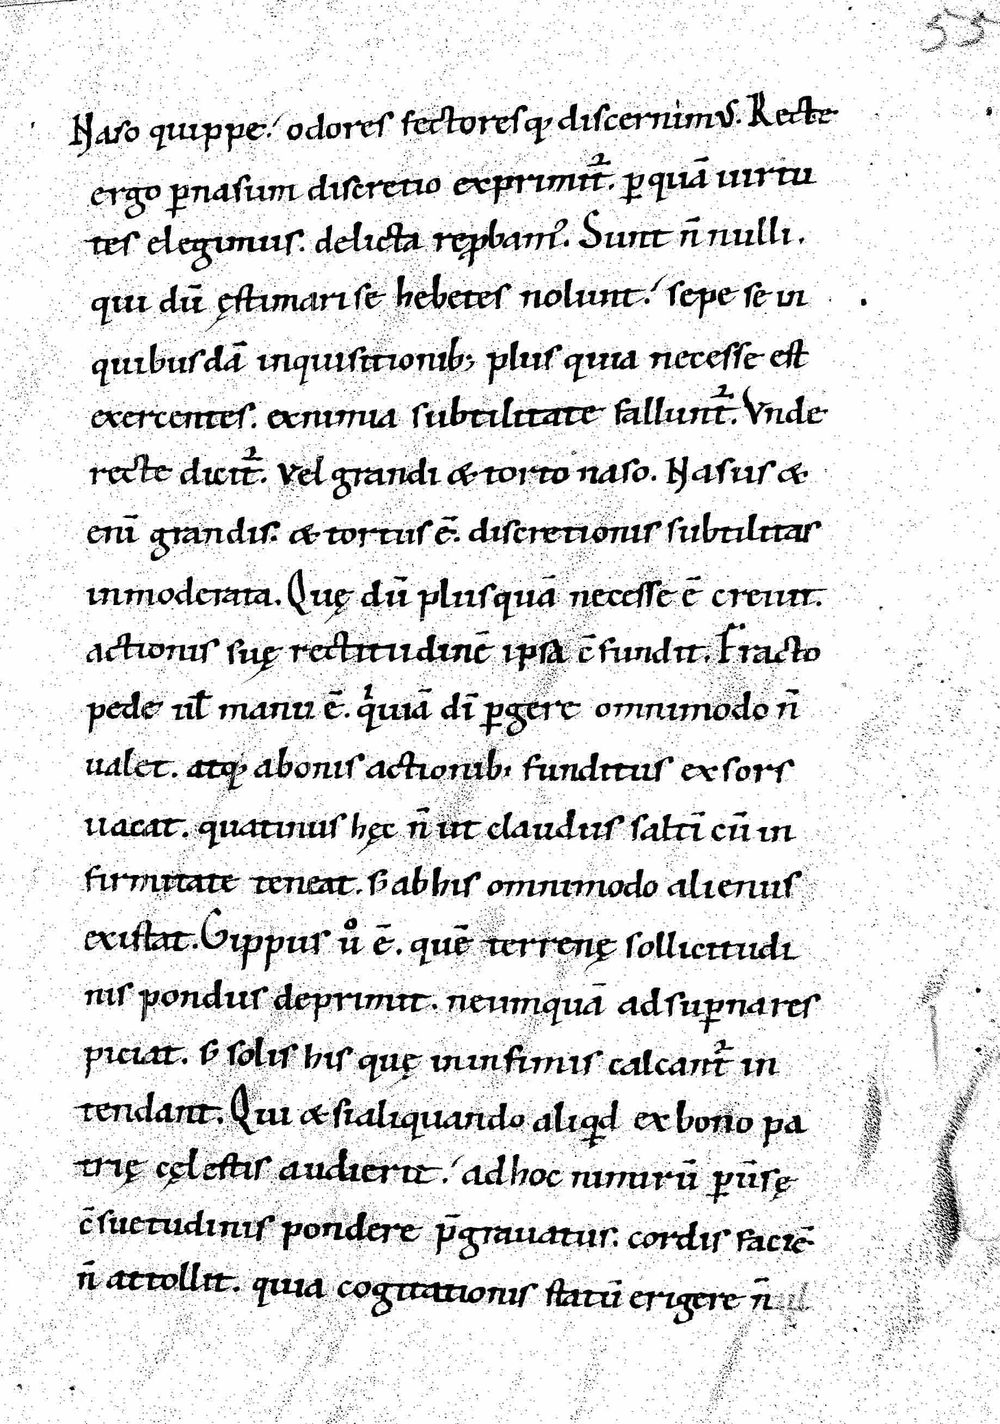 55
Naso quippe odores fectoresq; discernimus. Recte
ergo ꝑ nasum discretio exprimit᷑. ꝑ quā uirtu
tes elegimus. delicta reꝓbam᷒. Sunt n̄ nulli.
qui dū ęstimari se hebetes nolunt. sepe se in
quibusdā inquisitionib; plus quia necesse est
exercentes. ex nimia subtilitate fallunt᷑. Vnde
recte dicit᷑. Vel grandi & torto naso. Nasus &
enī grandis. & tortus ē. discretionis subtilitas
inmoderata. Quę dū plusquā necesse ē creuit.
actionis suę rectitudinē ipsa c̄fundit. Fracto
pede ul̄ manu ē. qui uiā dī ꝑgere omnimodo n̄
ualet. atq; a bonis actionib; funditus exsors
uacat. quatinus hęc n̄ ut claudus saltī cū in
firmitate teneat. s; ab his omnimodo alienus
existat. Gippus ů ē. quē terrenę sollicitudi
nis pondus deprimit. ne umquā ad suꝑna res
piciat. s; solis his quę in infimis calcant᷑ in
tendant. Qui & si aliquando aliqd ex bono pa
trię cęlestis audierit. ad hoc nimirū ꝑūsę
c̄suetudinis pondere p̄grauatus. cordis faciē
n̄ attollit. quia cogitationis statū erigere n̄